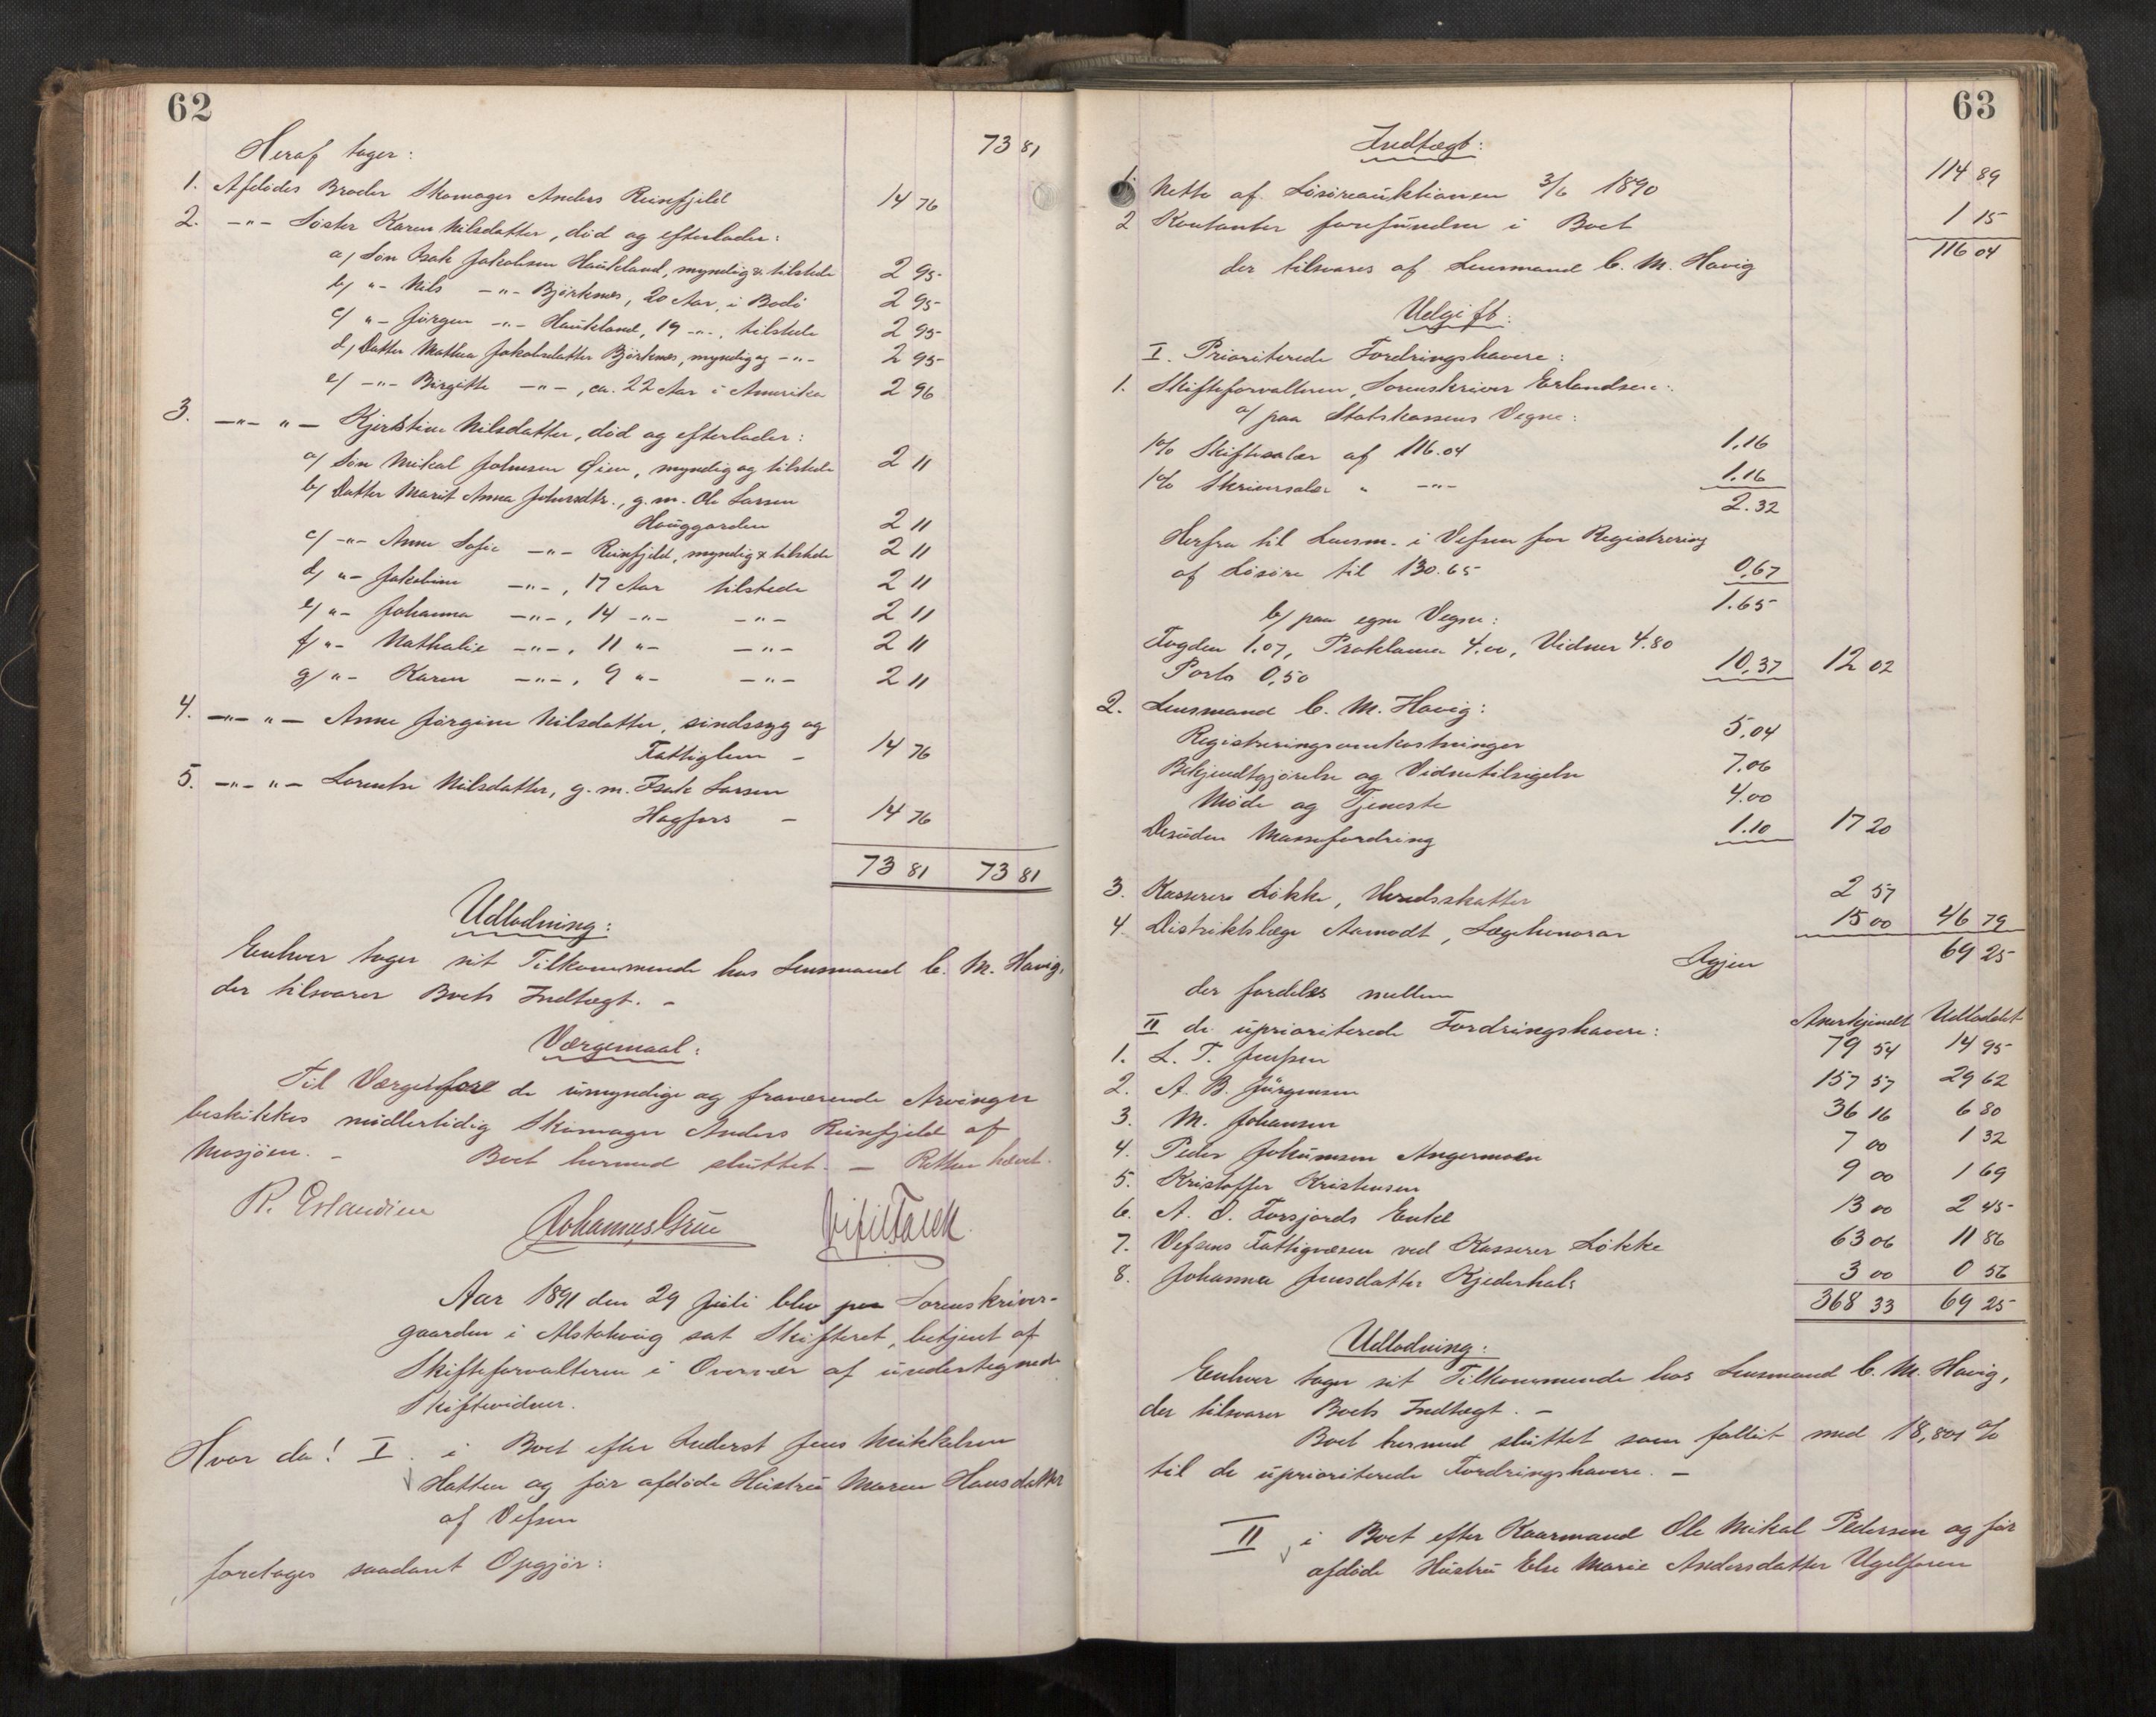 62
Heraf tager: 73 81
1. Afdødes Broder Skomager Anders Reinfjeld 14 76
2. -"- Søster Karen Nilsdatter, død og efterlader:
a/ Søn Isak Jakobsen Haukland, myndig & tilstede 2 95
b/ "- Nils -"- Bjørknes, 20 Aar, i Bodø 2 95
c/ "- Jørgen -"- Haukland, 19 -"-, tilstede 2 95
d/ Datter Mathea Jakobsdatter Bjørknes, myndig og -"- 2 95
e/ -"- Birgitte -"-, ca. 22 Aar i Amerika 2 96
3. -"- "- Kjerstine Nilsdatter, død og efterlader:
a/ Søn Mikal Johnsen Øien, myndig og tilstede 2 11
b/ Datter Marit Anna Johnsdtr., g. m. Ole Larsen
Hauggarden 2 11
c/ -"- Anne Sofie -"- Reinfjeld, myndig & tilstede 2 11
d/ "- Jakobine -"-, 17 Aar tilstede 2 11
e/ "- Johanna -"-, 14 -"- -"- 2 11
f/ "- Nathalie -"-, 11 "- -"- 2 11
g/ "- Karen -"-, 9 "- -"- 2 11
4. -"- "- Anne Jørgine Nilsdatter, sindssyg og
Fattiglem - 14 76
5. -"- "- Lorentse Nilsdatter, g. m. Isak Larsen
Hagfors - 14 76
73 81 73 81
Udlodning:
Enhver tager sit Tilkommende hos Lensmand C. M. Havig,
der tilsvarer Boets Indtægt. -
Værgemaal:
Til Værge for de umyndige og fraværende Arvinger
beskikkes midlertidig Skomager Anders Reinfjeld af
Mosjøen. - Boet hermed sluttet. - Retten hævet.
R. Erlandsen Johannes Grue
Aar 1891 den 29 Juli blev paa Sorenskriver-
gaarden i Alstahaug sat Skifteret, betjent af
Skifteforvalteren i Overvær af undertegnede
Skiftevidner.
Hvor da! I. i Boet efter Inderst Jens Mikkelsen
Hatten og før afdøde Hustru Maren Hansdatter
af Vefsen
foretages saadant Opgjør:
63
Indtægt:
1. Netto af Løsøreauktionen 3/6 1890 114 89
2 Kontanter forefundne i Boet 1 15
der tilsvares af Lensmand C. M. Havig 116 04
Udgift:
I. Prioriterede Fordringshavere:
1. Skifteforvalteren, Sorenskriver Erlandsen:
a/ paa Statskassens Vegne:
1% Skiftesalær af 116.04 1,16
1% Skriversalær " -"- 1.16
2.32
Herfra til Lensm. i Vefsen for Registrering
af Løsøre til 130.65 0,67
1.65
b/ paa egne Vegne:
Fogden 1.07, Proklama 4.00, Vidner 4.80
Porto 0,50 10,37 12 02
2. Lensmand C. M. Havig:
Registreringsomkostninger 5,04
Bekjendtgjørelse og Vidnetilsigelse 7,06
Møde og Tjeneste 4.00
Desuden Massefordring 1.10 17 20
3. Kasserer Løkke, Herredsskatter 2 57
4. Distriktslæge Aamodt, Lægehonorar 15 00 46 79
Igjen 69 25
der fordeles mellem
II de uprioriterede Fordringshavere: Anerkjendt Udloddet
1. L. T. Jenssen 79 54 14 95
2. A. B. Jürgensen 157 57 29 62
3. M. Johansen 36 16 6 80
4. Peder Johansen Angermoen 7 00 1 32
5. Kristoffer Kristensen 9 00 1 69
6. A. O. Forsjords Enke 13 00 2 45
7. Vefsens Fattigvæsen ved Kasserer Løkke 63 06 11 86
8. Johanna Jensdatter Kjederhals 3 00 0 56
368 33 69 25
Udlodning:
Enhver tager sit Tilkommende hos Lensmand C. M. Havig,
der tilsvarer Boets Indtægt. -
Boet hermed sluttet som fallit med 18,801 %
til de uprioriterede Fordringshavere. -
II i Boet efter Kaarmand Ole Mikal Pedersen og før
afdøde Hustru Else Marie Andersdatter Ugelforen